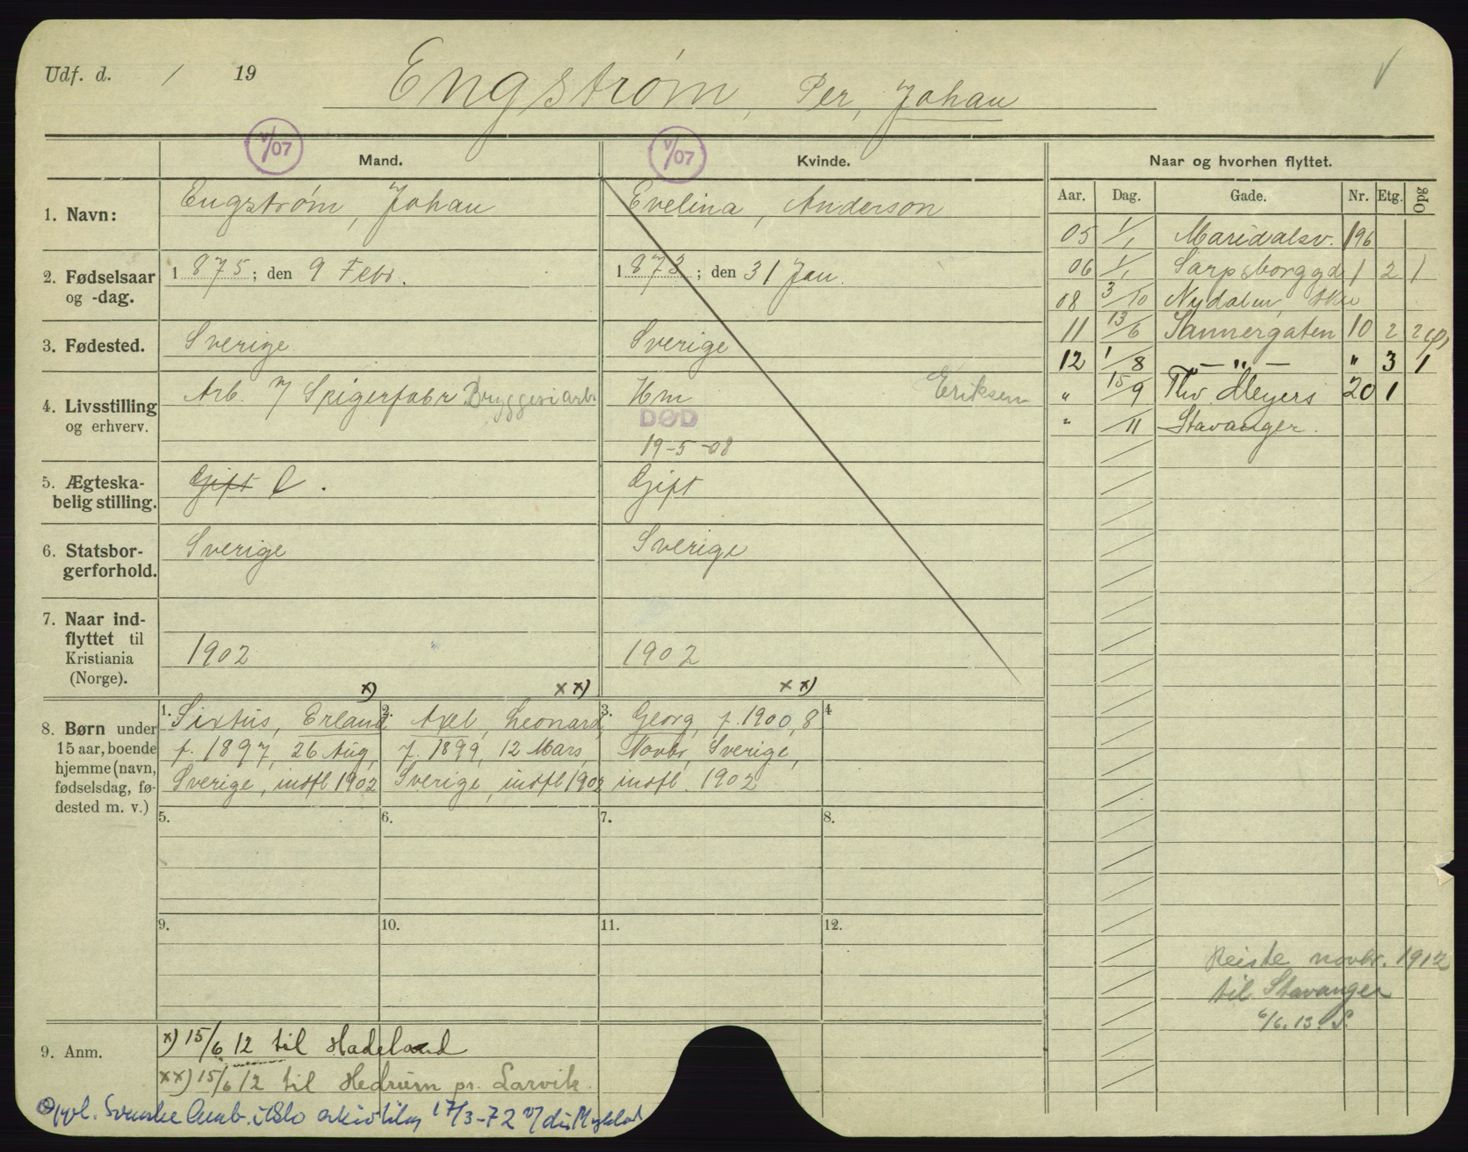 Udf. d. / 19
Engstrøm, Per, Johan
V/07
Mand.
V/07
Kvinde.
Naar og hvorhen flyttet.
Aar. Dag. Gade. Nr. Etg. Opg
1. Navn:
Engstrøm, Johan
Evelina, Anderson
2. Fødselsaar
og -dag.
1875; den 9 Febr.
1873; den 31 Jan.
3. Fødested.
Sverige
Sverige
4. Livsstilling
og erhverv.
Arb. v/ Spigerfabr Bryggeriarb
Hm
Eriksen
DØD
19-5-08
5. Ægteska-
belig stilling.
Gift E.
Gift
6. Statsbor-
gerforhold.
Sverige
Sverige
7. Naar ind-
flyttet til
Kristiania
(Norge).
1902
1902
05 1/1 Maridalsv. 196
06 1/1 Sarpsborggd 1 2 1
08 3/10 Nydalen
11 13/6 Sannergaten 10 2 2
12 1/8 —„— „ 3 1
„ 15/9 Thv Meyers 20 1
„ /11 Stavanger.
8. Børn under
15 aar, boende
hjemme (navn,
fødselsdag, fø-
dested m. v.)
x)
1. Sixtus, Erland
f. 1897, 26 Aug,
Sverige, indfl 1902
xx)
2. Axel, Leonard,
f. 1899, 12 Mars,
Sverige, indfl 1902
xx)
3. Georg, f. 1900, 8
Novbr, Sverige,
indfl. 1902
4
5.
6.
7.
8.
9.
10.
11.
12.
Reiste novbr. 1912
til Stavanger
6/6.13. S.
9. Anm.
x) 15/6 12 til Hadeland
xx) 15/6 12 til Hedrum pr. Larvik.
Oppl. Svenske Amb. i Oslo 17/3-72 v/